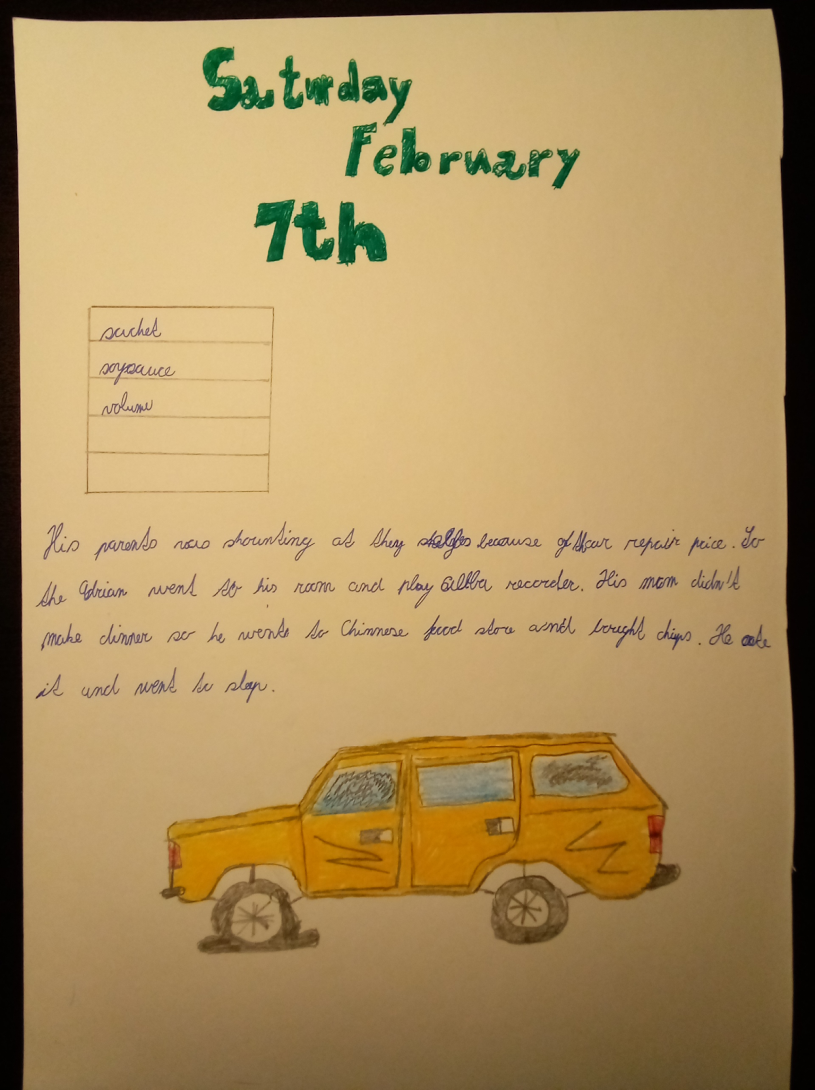 Saturday
February
7th
sachet
soysauce
volume
His parents was shounting at they because of car repair price. So
the Adrian went to his room and play recorder. His mom didn't
make dinner so he wents to Chinnese food store and bought chips. He ate
it and went to slep.